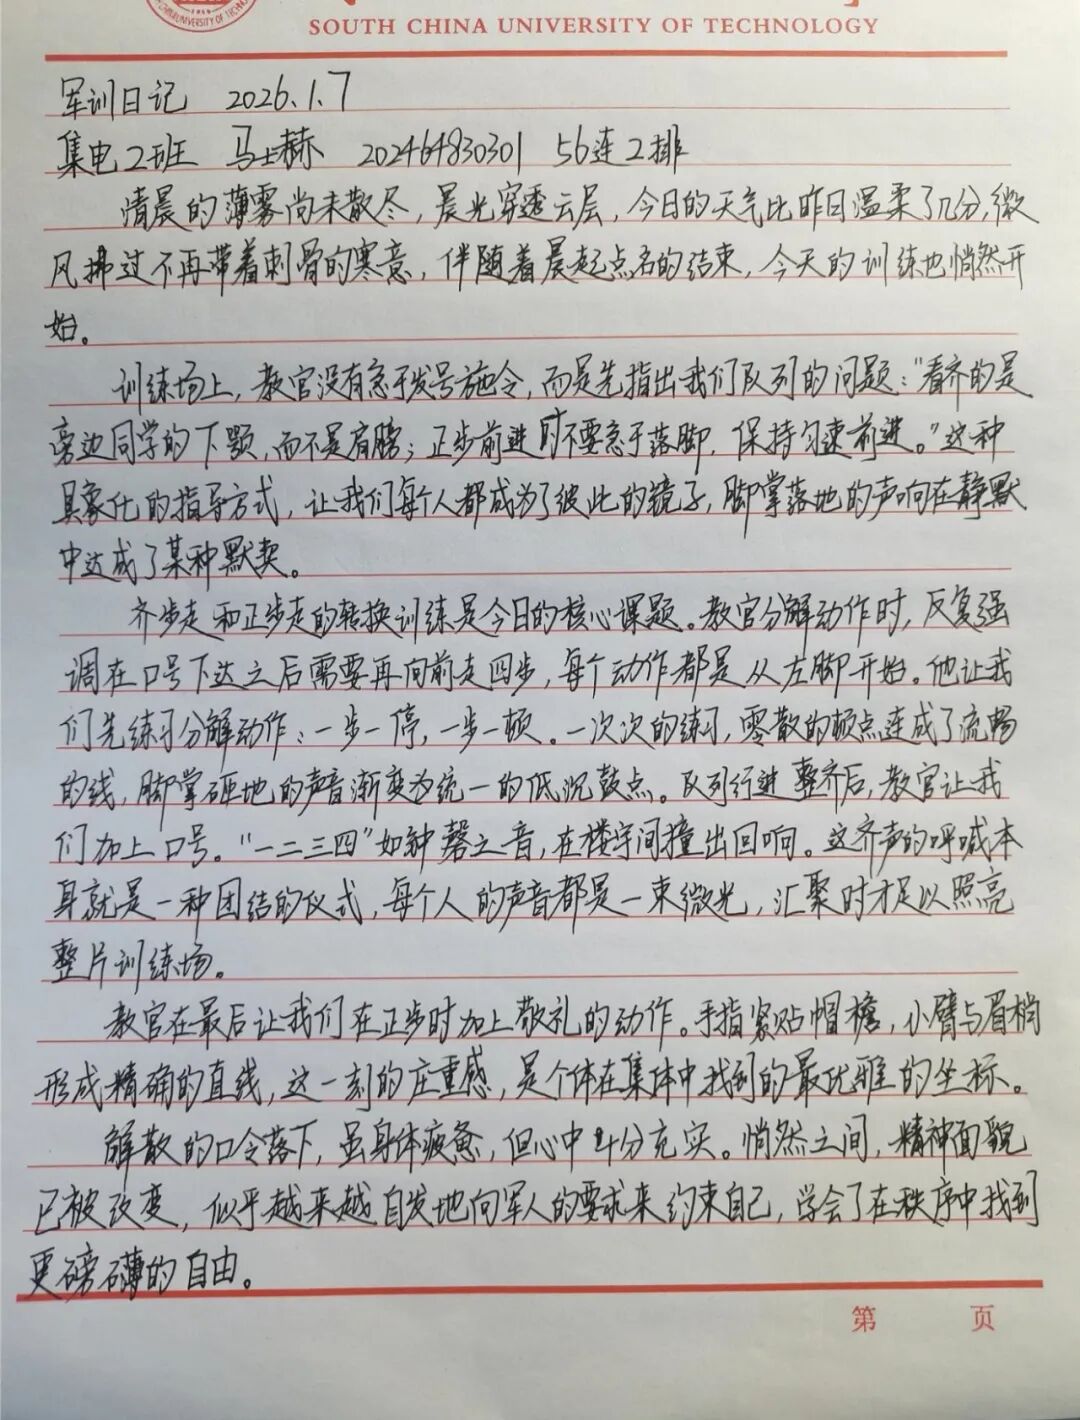 SOUTH CHINA UNIVERSITY OF TECHNOLOGY
军训日记 2026.1.7
集电2班 马士赫 202464830301 56连2排
清晨的薄雾尚未散尽，晨光穿透云层，今日的天气比昨日温柔了几分，微
风拂过不再带着刺骨的寒意，伴随着晨起点名的结束，今天的训练也悄然开
始。
训练场上，教官没有急于发号施令，而是先指出我们队列的问题："看齐的是
旁边同学的下颚，而不是肩膀；正步前进时不要急于落脚，保持匀速前进。"这种
具象化的指导方式，让我们每个人都成为了彼此的镜子，脚掌落地的声响在静默
中达成了某种默契。
齐步走和正步走的转换训练是今日的核心课题。教官分解动作时，反复强
调在口号下达之后需要再向前走四步，每个动作都是从左脚开始。他让我
们先练习分解动作：一步一停，一步一顿。一次次的练习，零散的顿点连成了流畅
的线，脚掌砸地的声音渐变为统一的低沉鼓点。队列行进整齐后，教官让我
们加上口号。"一二三四"如钟磬之音，在楼宇间撞出回响。这齐声的呼喊本
身就是一种团结的仪式，每个人的声音都是一束微光，汇聚时才足以照亮
整片训练场。
教官在最后让我们在正步时加上敬礼的动作。手指紧贴帽檐，小臂与眉梢
形成精确的直线，这一刻的庄重感，是个体在集体中找到的最优雅的坐标。
解散的口令落下，虽身体疲惫，但心中十分充实。悄然之间，精神面貌
已被改变，似乎越来越自发地向军人的要求来约束自己，学会了在秩序中找到
更磅礴的自由。
第 页